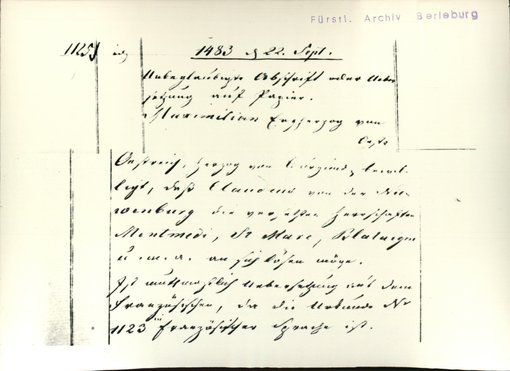 Fürstl. Archiv Berleburg
1125) 1483 22. Sept.
Unbeglaubigte Abschrift oder Ueber
setzung auf Papier.
Maximilian Erzherzog von
Oestr
Oestreich, Herzog von Burgund, bewil-
ligt, daß Claudius von der Neu-
enburg die versetzten Herrschaften
Mentmedi, St Marc,
u. m. a. an sich lösen möge.
Ist muthmaßlich Uebersetzung aus dem
Französischen, da die Urkunde No
1123 in französischer Sprache ist.